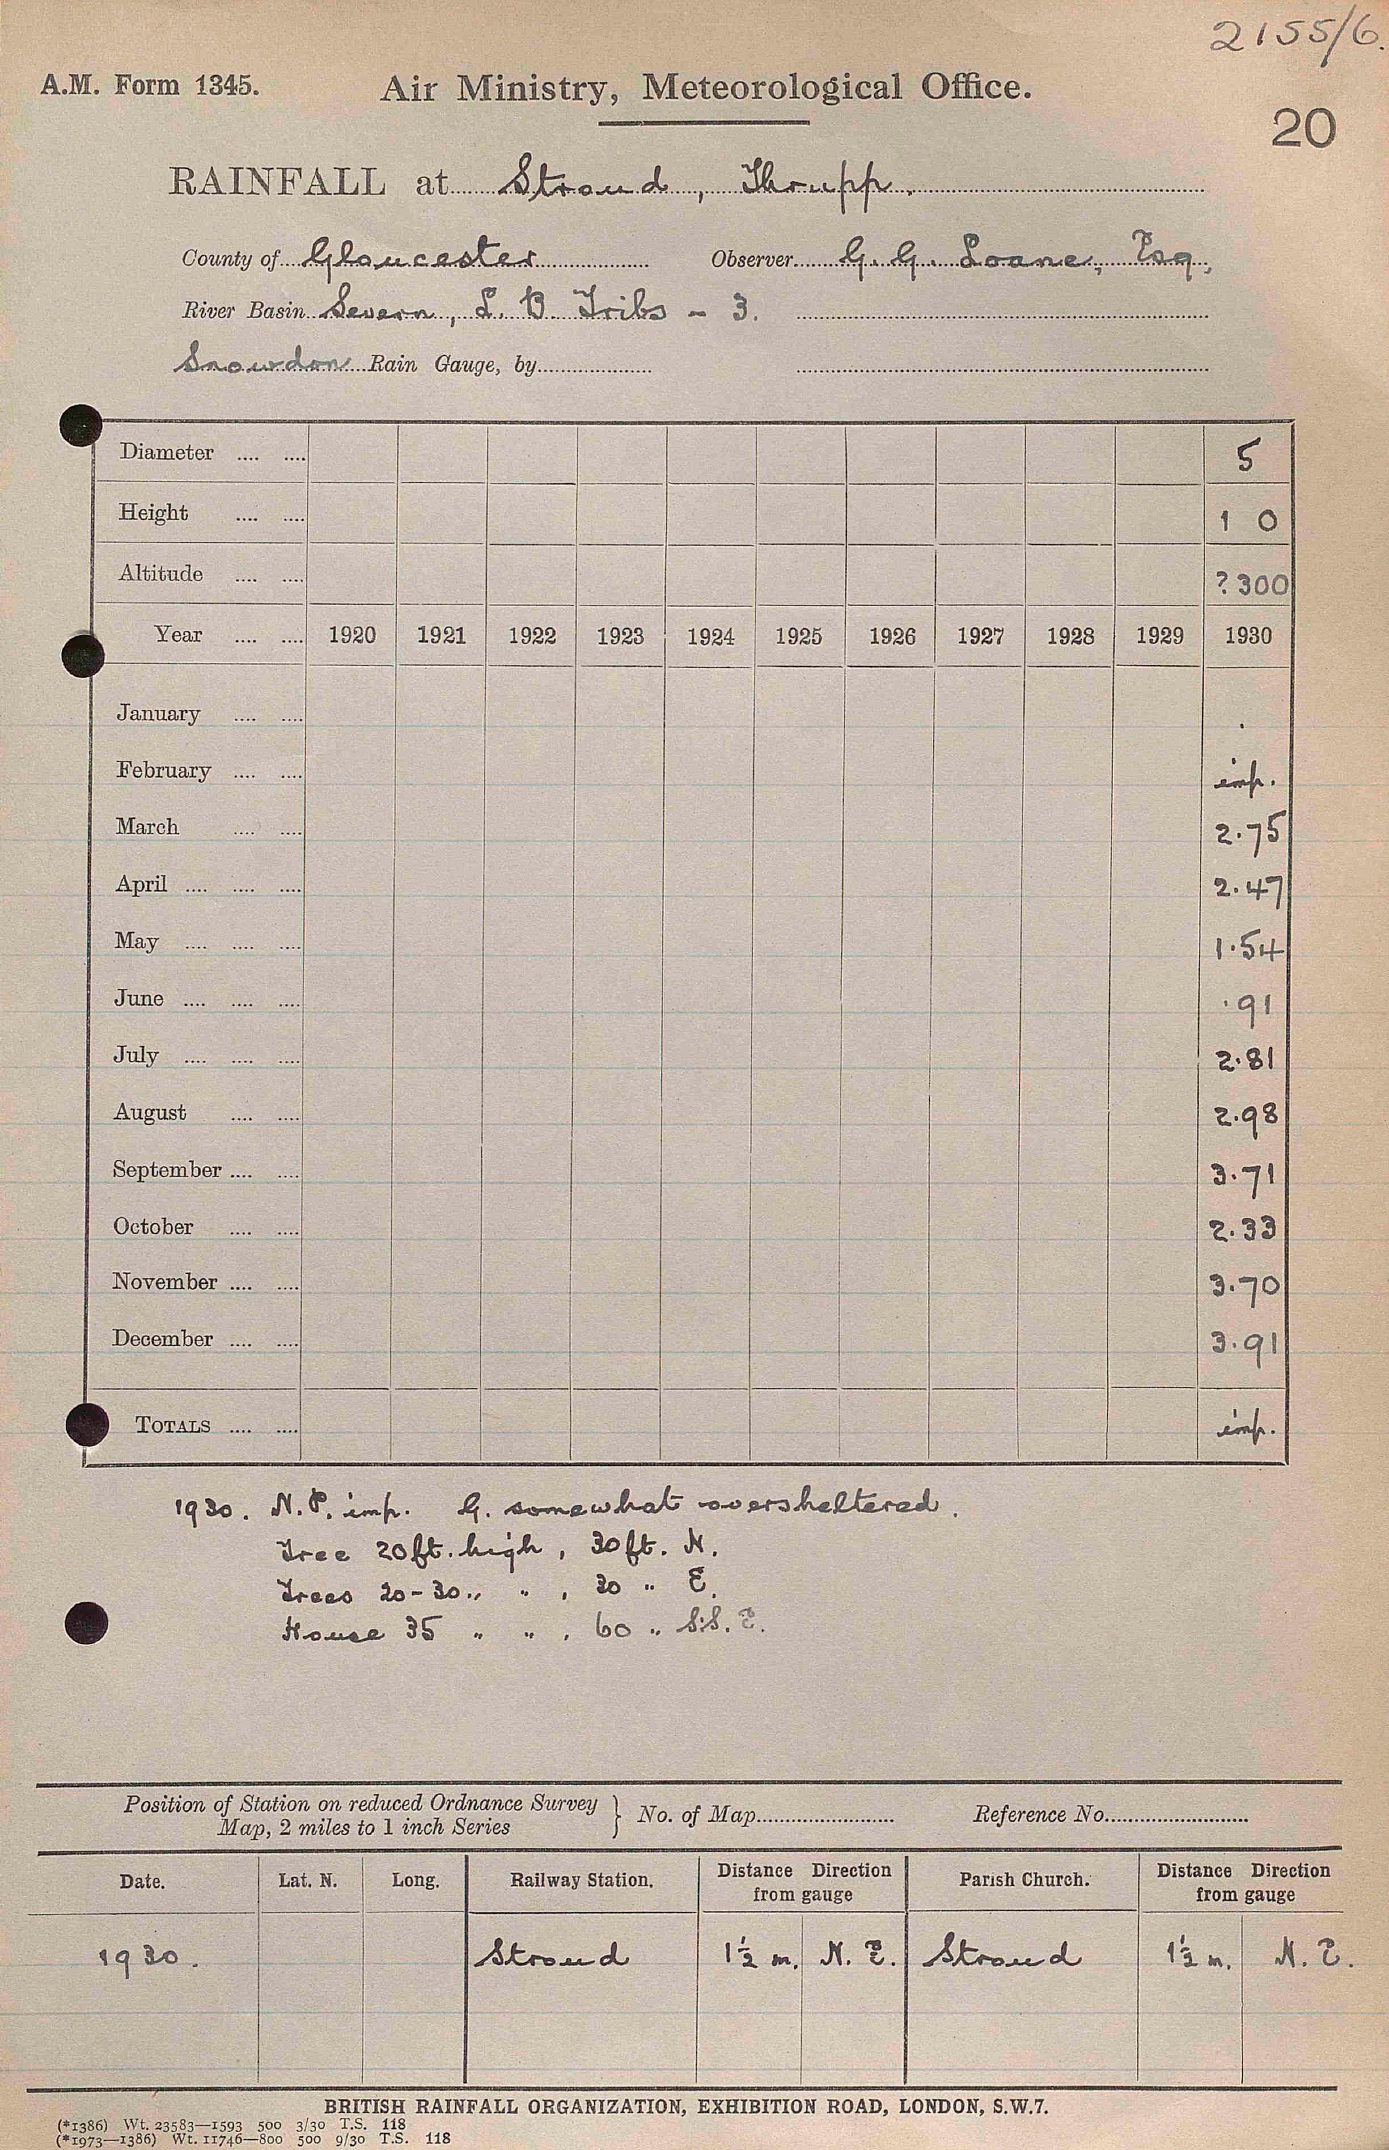 2155/6.
A.M. Form 1345. Air Ministry, Meteorological Office.
20
RAINFALL at Stroud, Thrupp.
County of Gloucester Observer G. G. Loane, Esq,
River Basin Severn, L. B. Tribs - 3.
Snowdon Rain Gauge, by
Diameter .... .... 5
Height .... .... 1 0
Altitude .... .... ? 300
Year .... .... 1920 1921 1922 1923 1924 1925 1926 1927 1928 1929 1930
January .... .... .
February .... .... imp.
March .... .... 2.75
April .... .... .... 2.47
May .... .... .... 1.54
June .... .... .... .91
July .... .... .... 2.81
August .... .... 2.98
September .... .... 3.71
October .... .... 2.33
November .... .... 3.70
December .... .... 3.91
TOTALS .... .... imp.
1930. N.P. imp. G. somewhat oversheltered.
Tree 20ft. high, 30ft. N.
Trees 20-30 „ „ , 30 „ E.
House 35 „ „ , 60 „ S.S.E.
Position of Station on reduced Ordnance Survey
Map, 2 miles to 1 inch Series } No. of Map Reference No.
Date. Lat. N. Long. Railway Station. Distance Direction from gauge Parish Church. Distance Direction from gauge
1930. Stroud 1½ m. N.E. Stroud 1½ m. N.E.
BRITISH RAINFALL ORGANIZATION, EXHIBITION ROAD, LONDON, S.W.7.
(*1386) Wt. 23583—1593 500 3/30 T.S. 118
(*1973—1386) Wt. 11746—800 500 9/30 T.S. 118